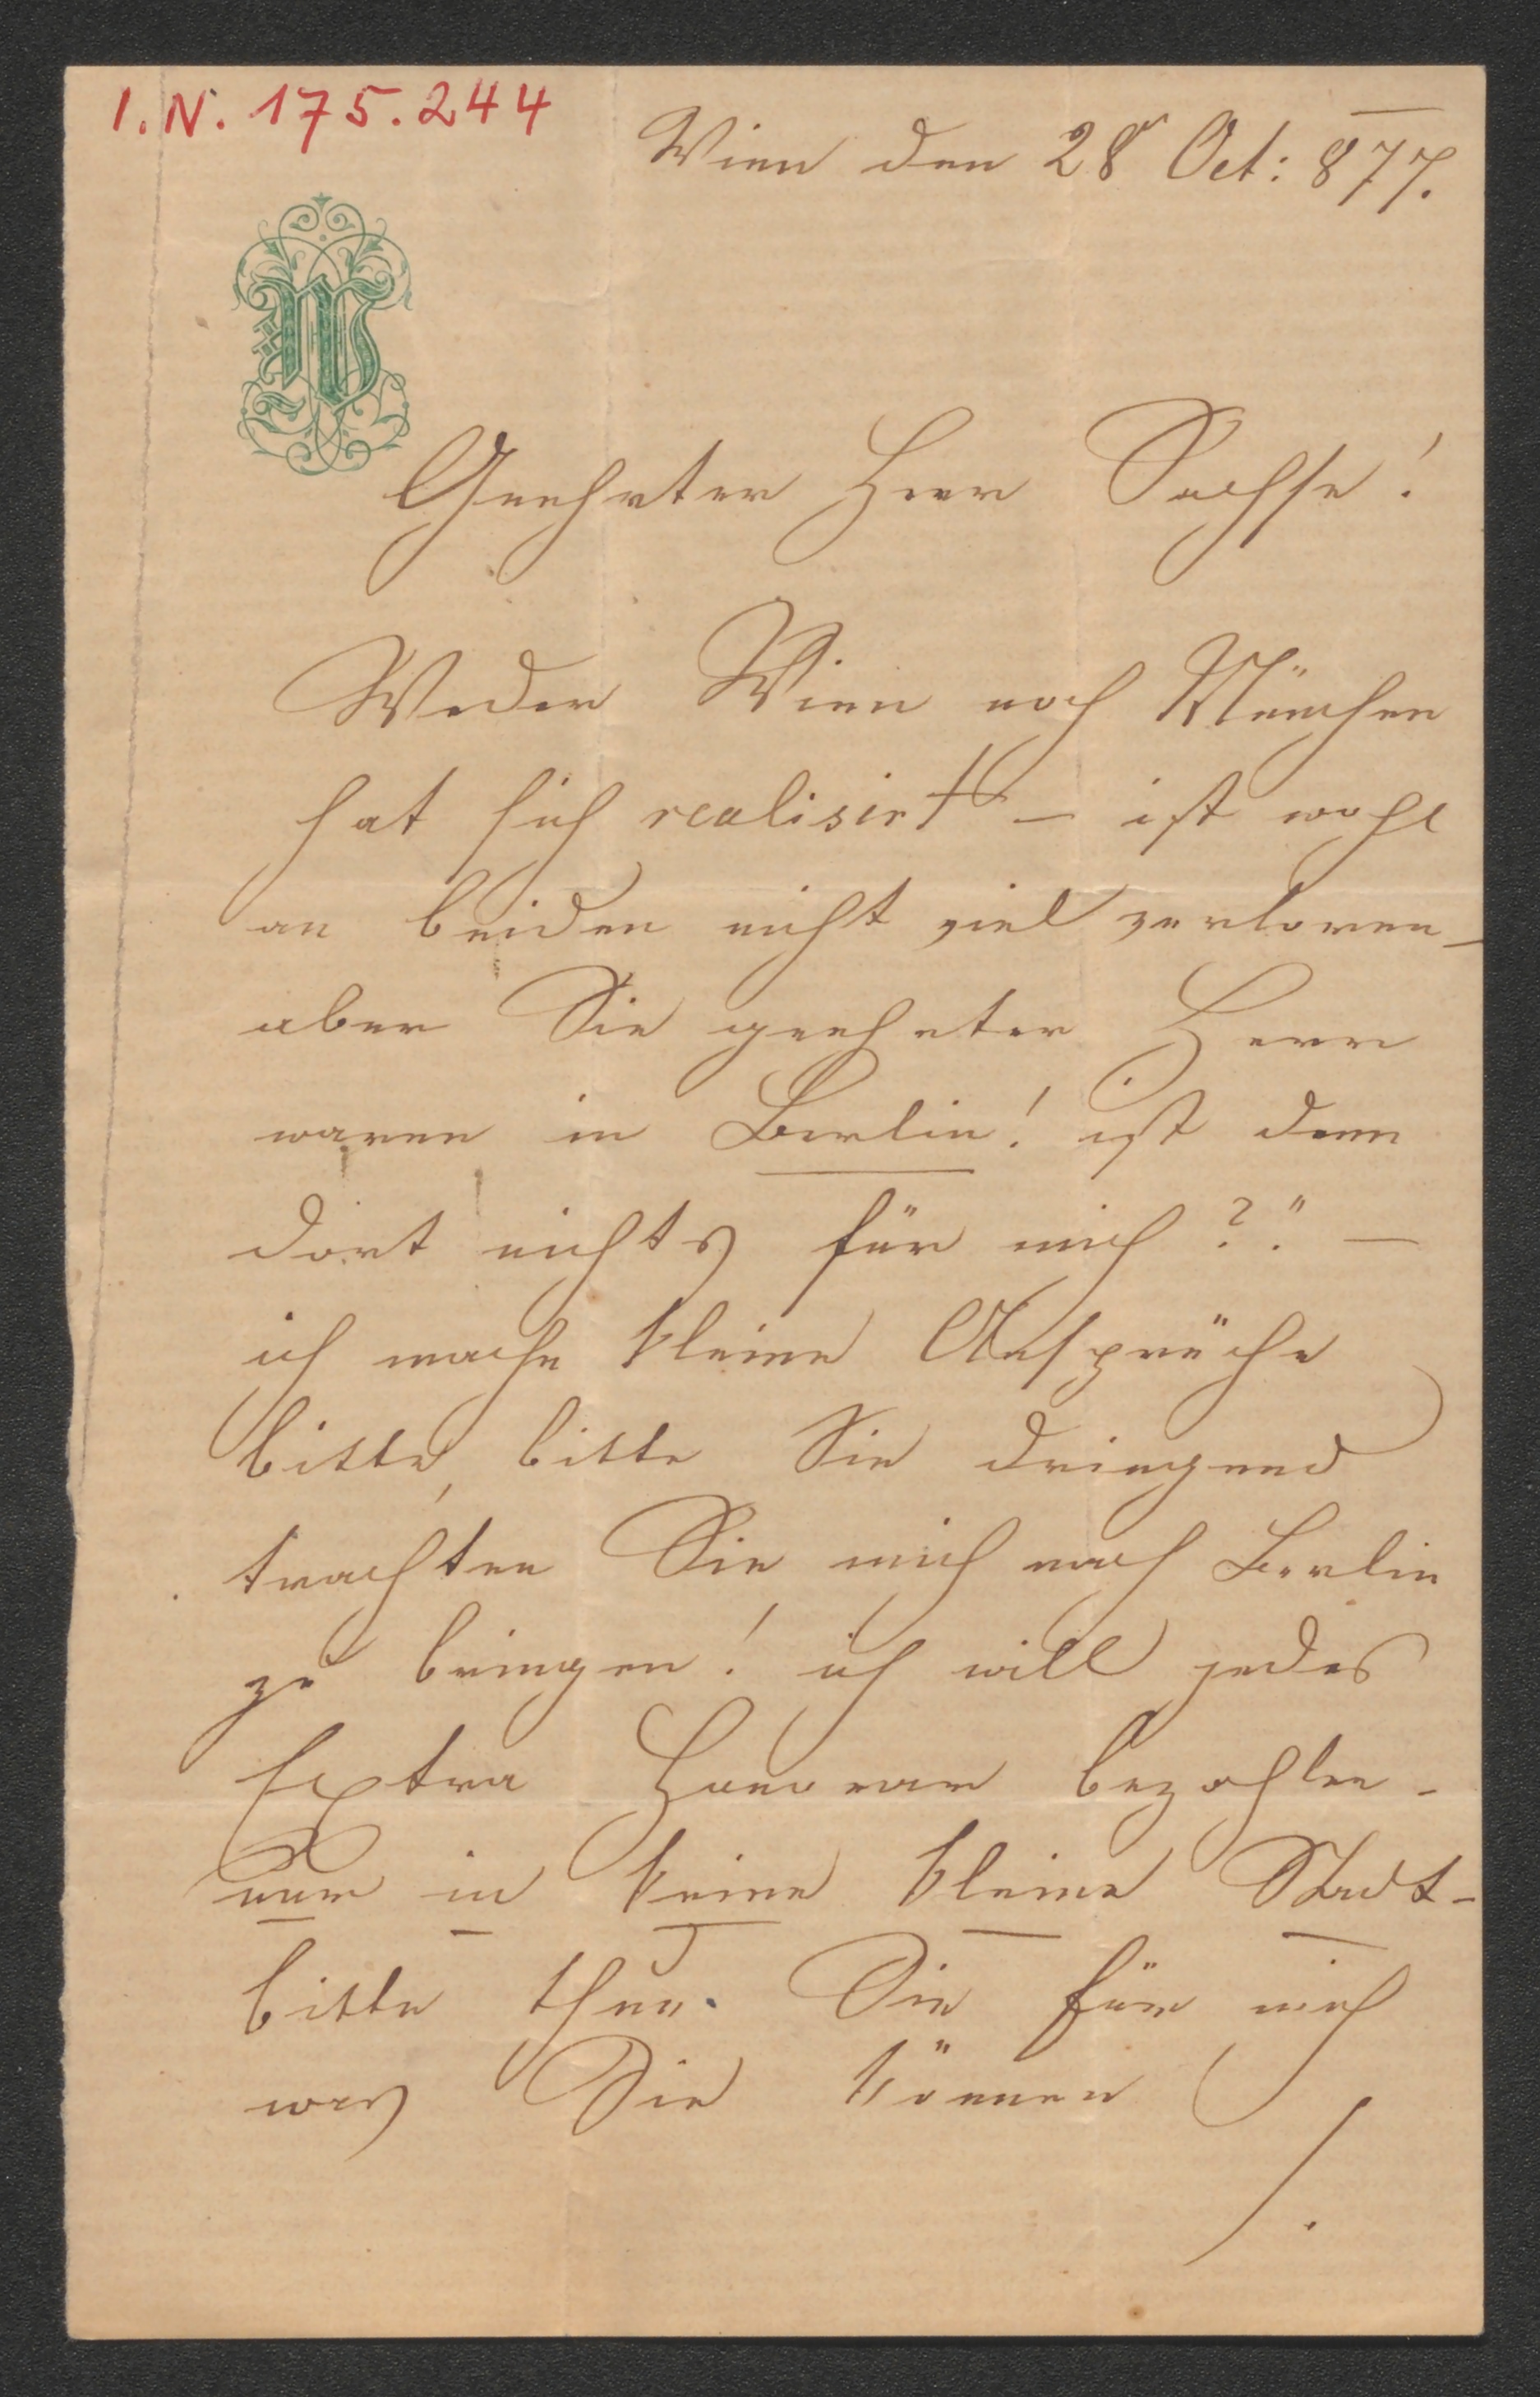 I. N. 175.244
Wien den 28 Oct: 877.
W
Geehrter Herr Sachse!
Weder Wien noch München
hat sich realisirt – ist wohl
an beiden nicht viel verloren –
aber Sie geehrter Herr
waren in Berlin! ist denn
dort nichts für mich?" –
ich mache kleine Ansprüche
bitte, bitte Sie dringend
trachten Sie mich nach Berlin
zu bringen! ich will jedes
Extra Honorar bezahlen –
nur in keine kleine Stadt –
bitte thun Sie für mich
was Sie können
!